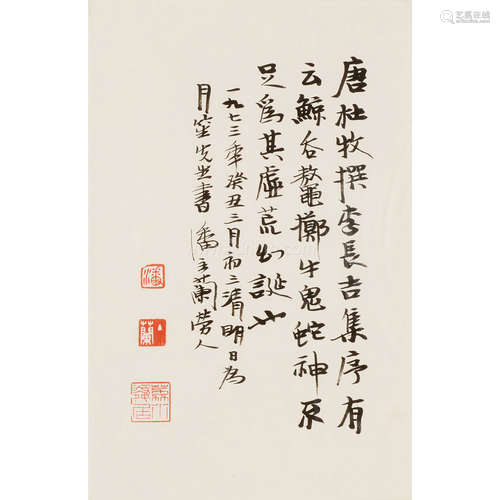 唐杜牧撰李長吉集序有
云鯨吞鼇擲牛鬼蛇神不
足爲其虛荒幻誕也
一九七三年癸丑三月初三清明日為
月笙先生書 潘主蘭勞人
潘
蘭